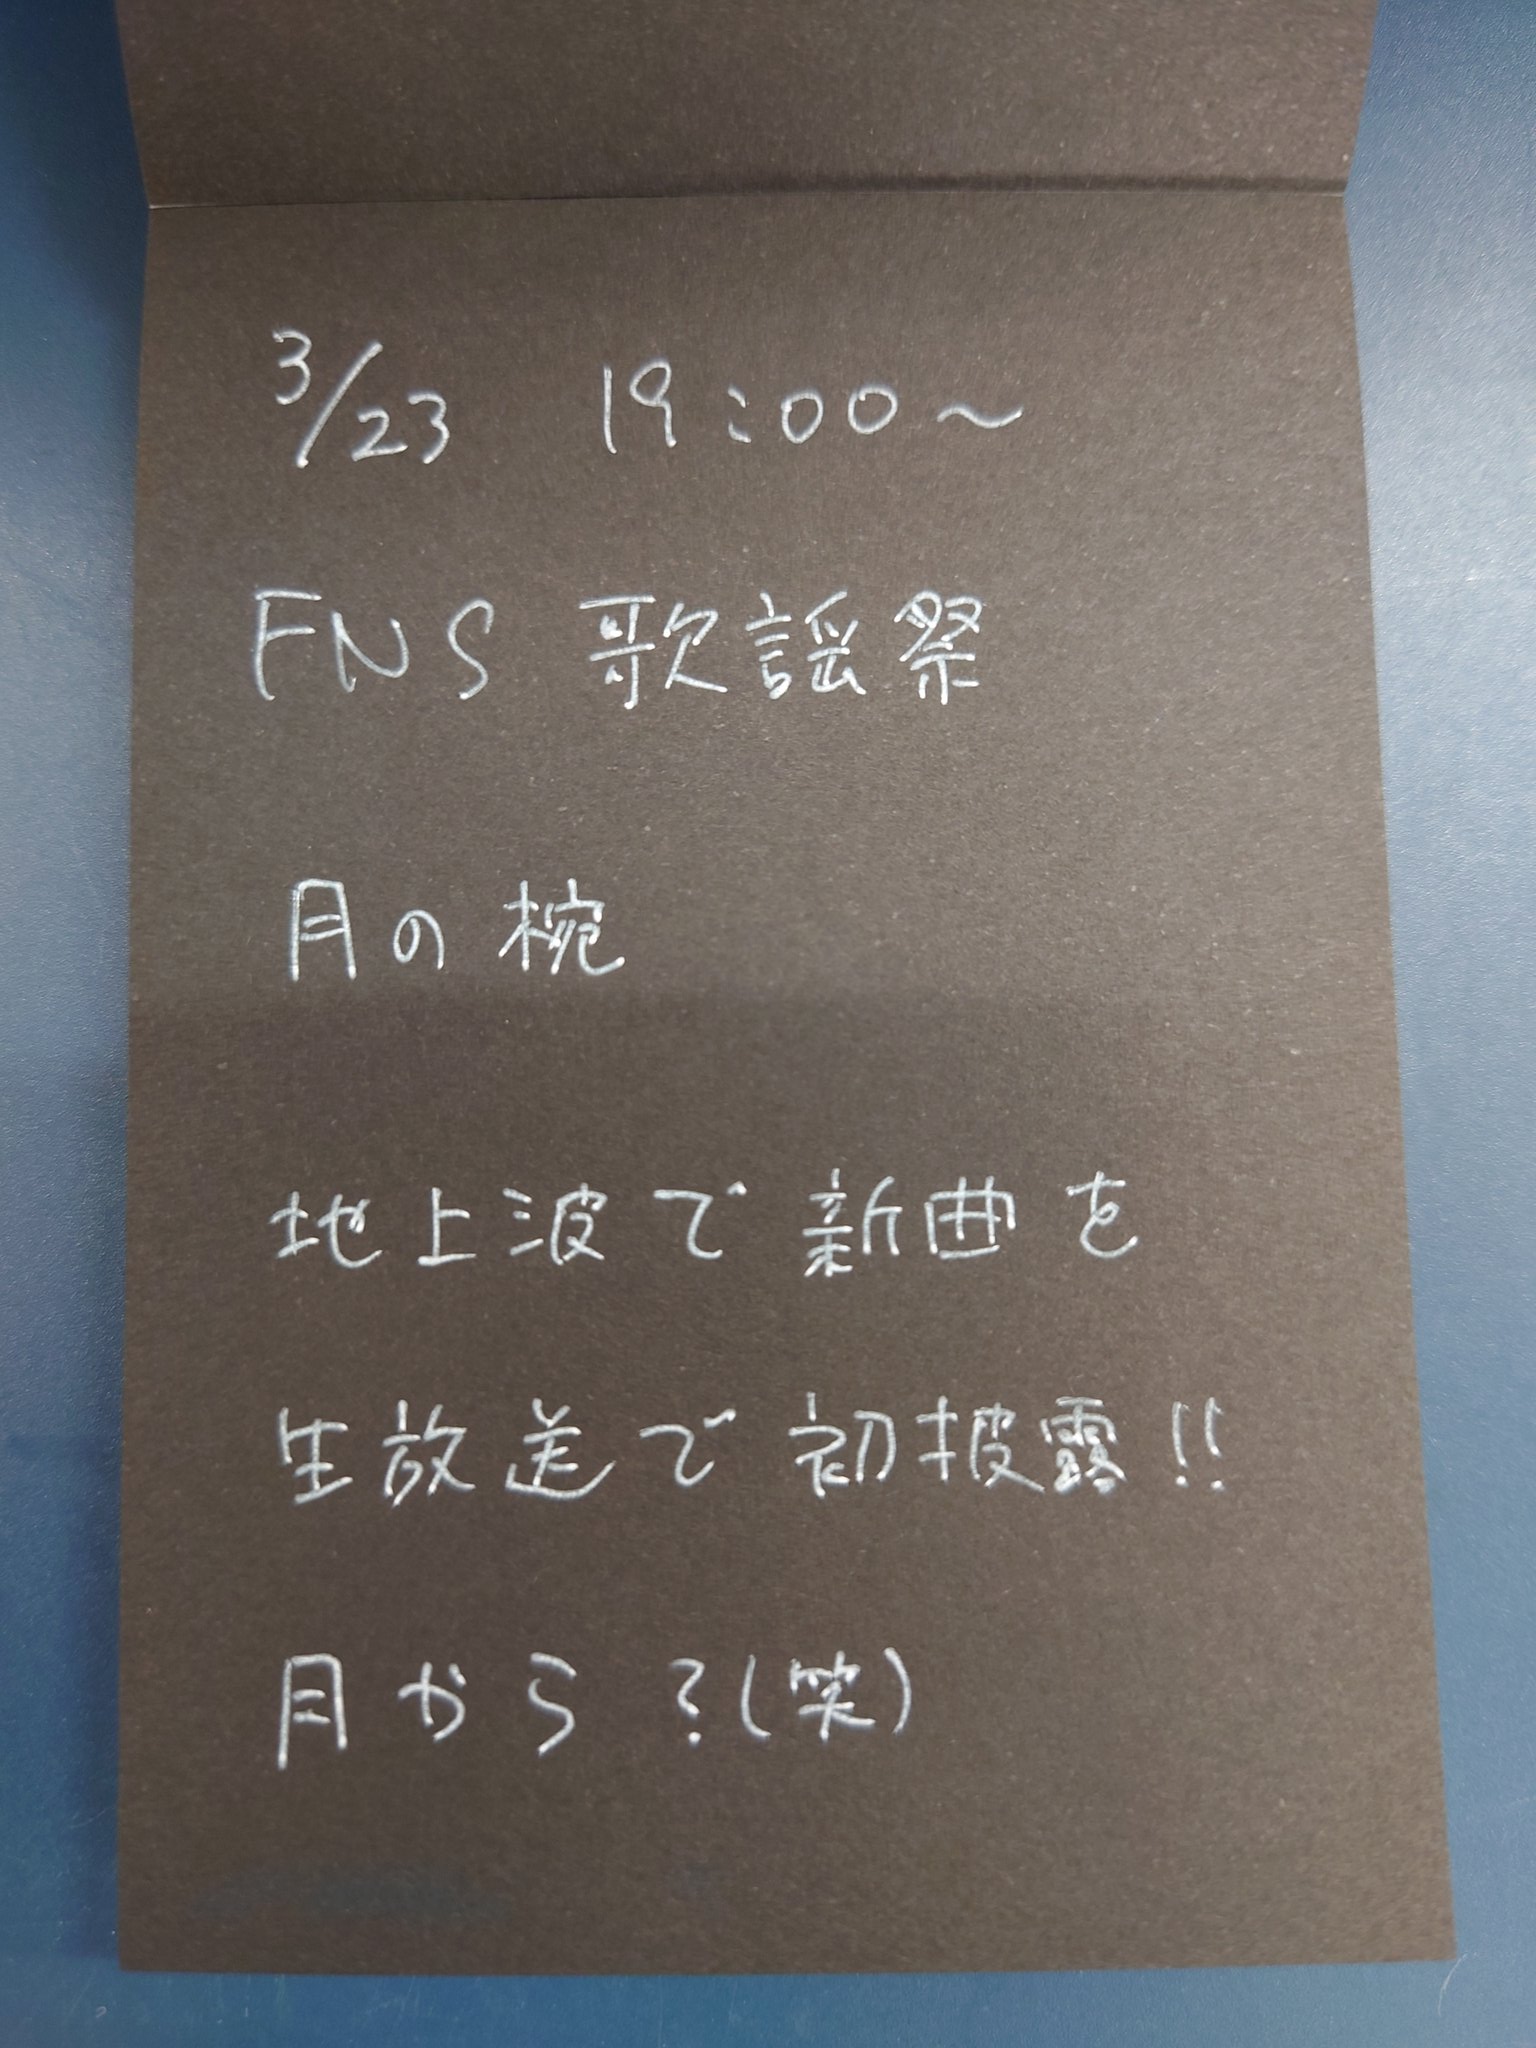 3/23 19:00～
FNS 歌謡祭
月の椀
地上波で新曲を
生放送で初披露!!
月から?(笑)